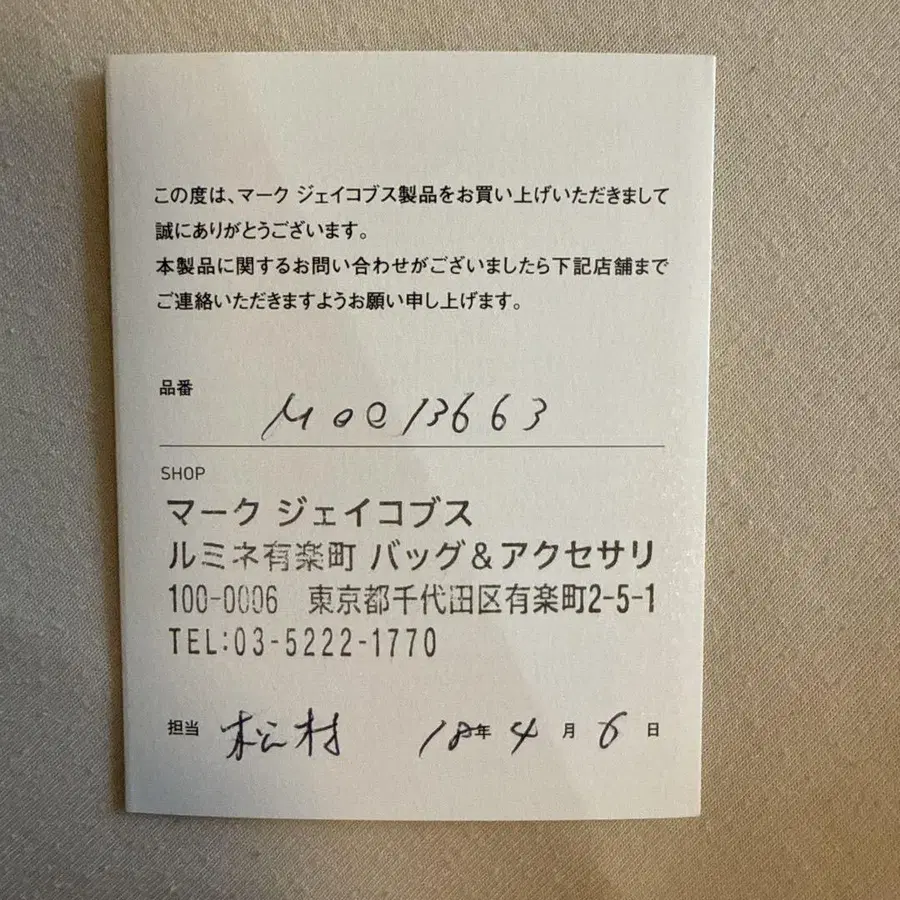 この度は、マーク ジェイコブス製品をお買い上げいただきまして
誠にありがとうございます。
本製品に関するお問い合わせがございましたら下記店舗まで
ご連絡いただきますようお願い申し上げます。
品番 M0013663
SHOP
マーク ジェイコブス
ルミネ有楽町 バッグ＆アクセサリ
100-0006 東京都千代田区有楽町2-5-1
TEL:03-5222-1770
担当 松村 18年 4月 6日